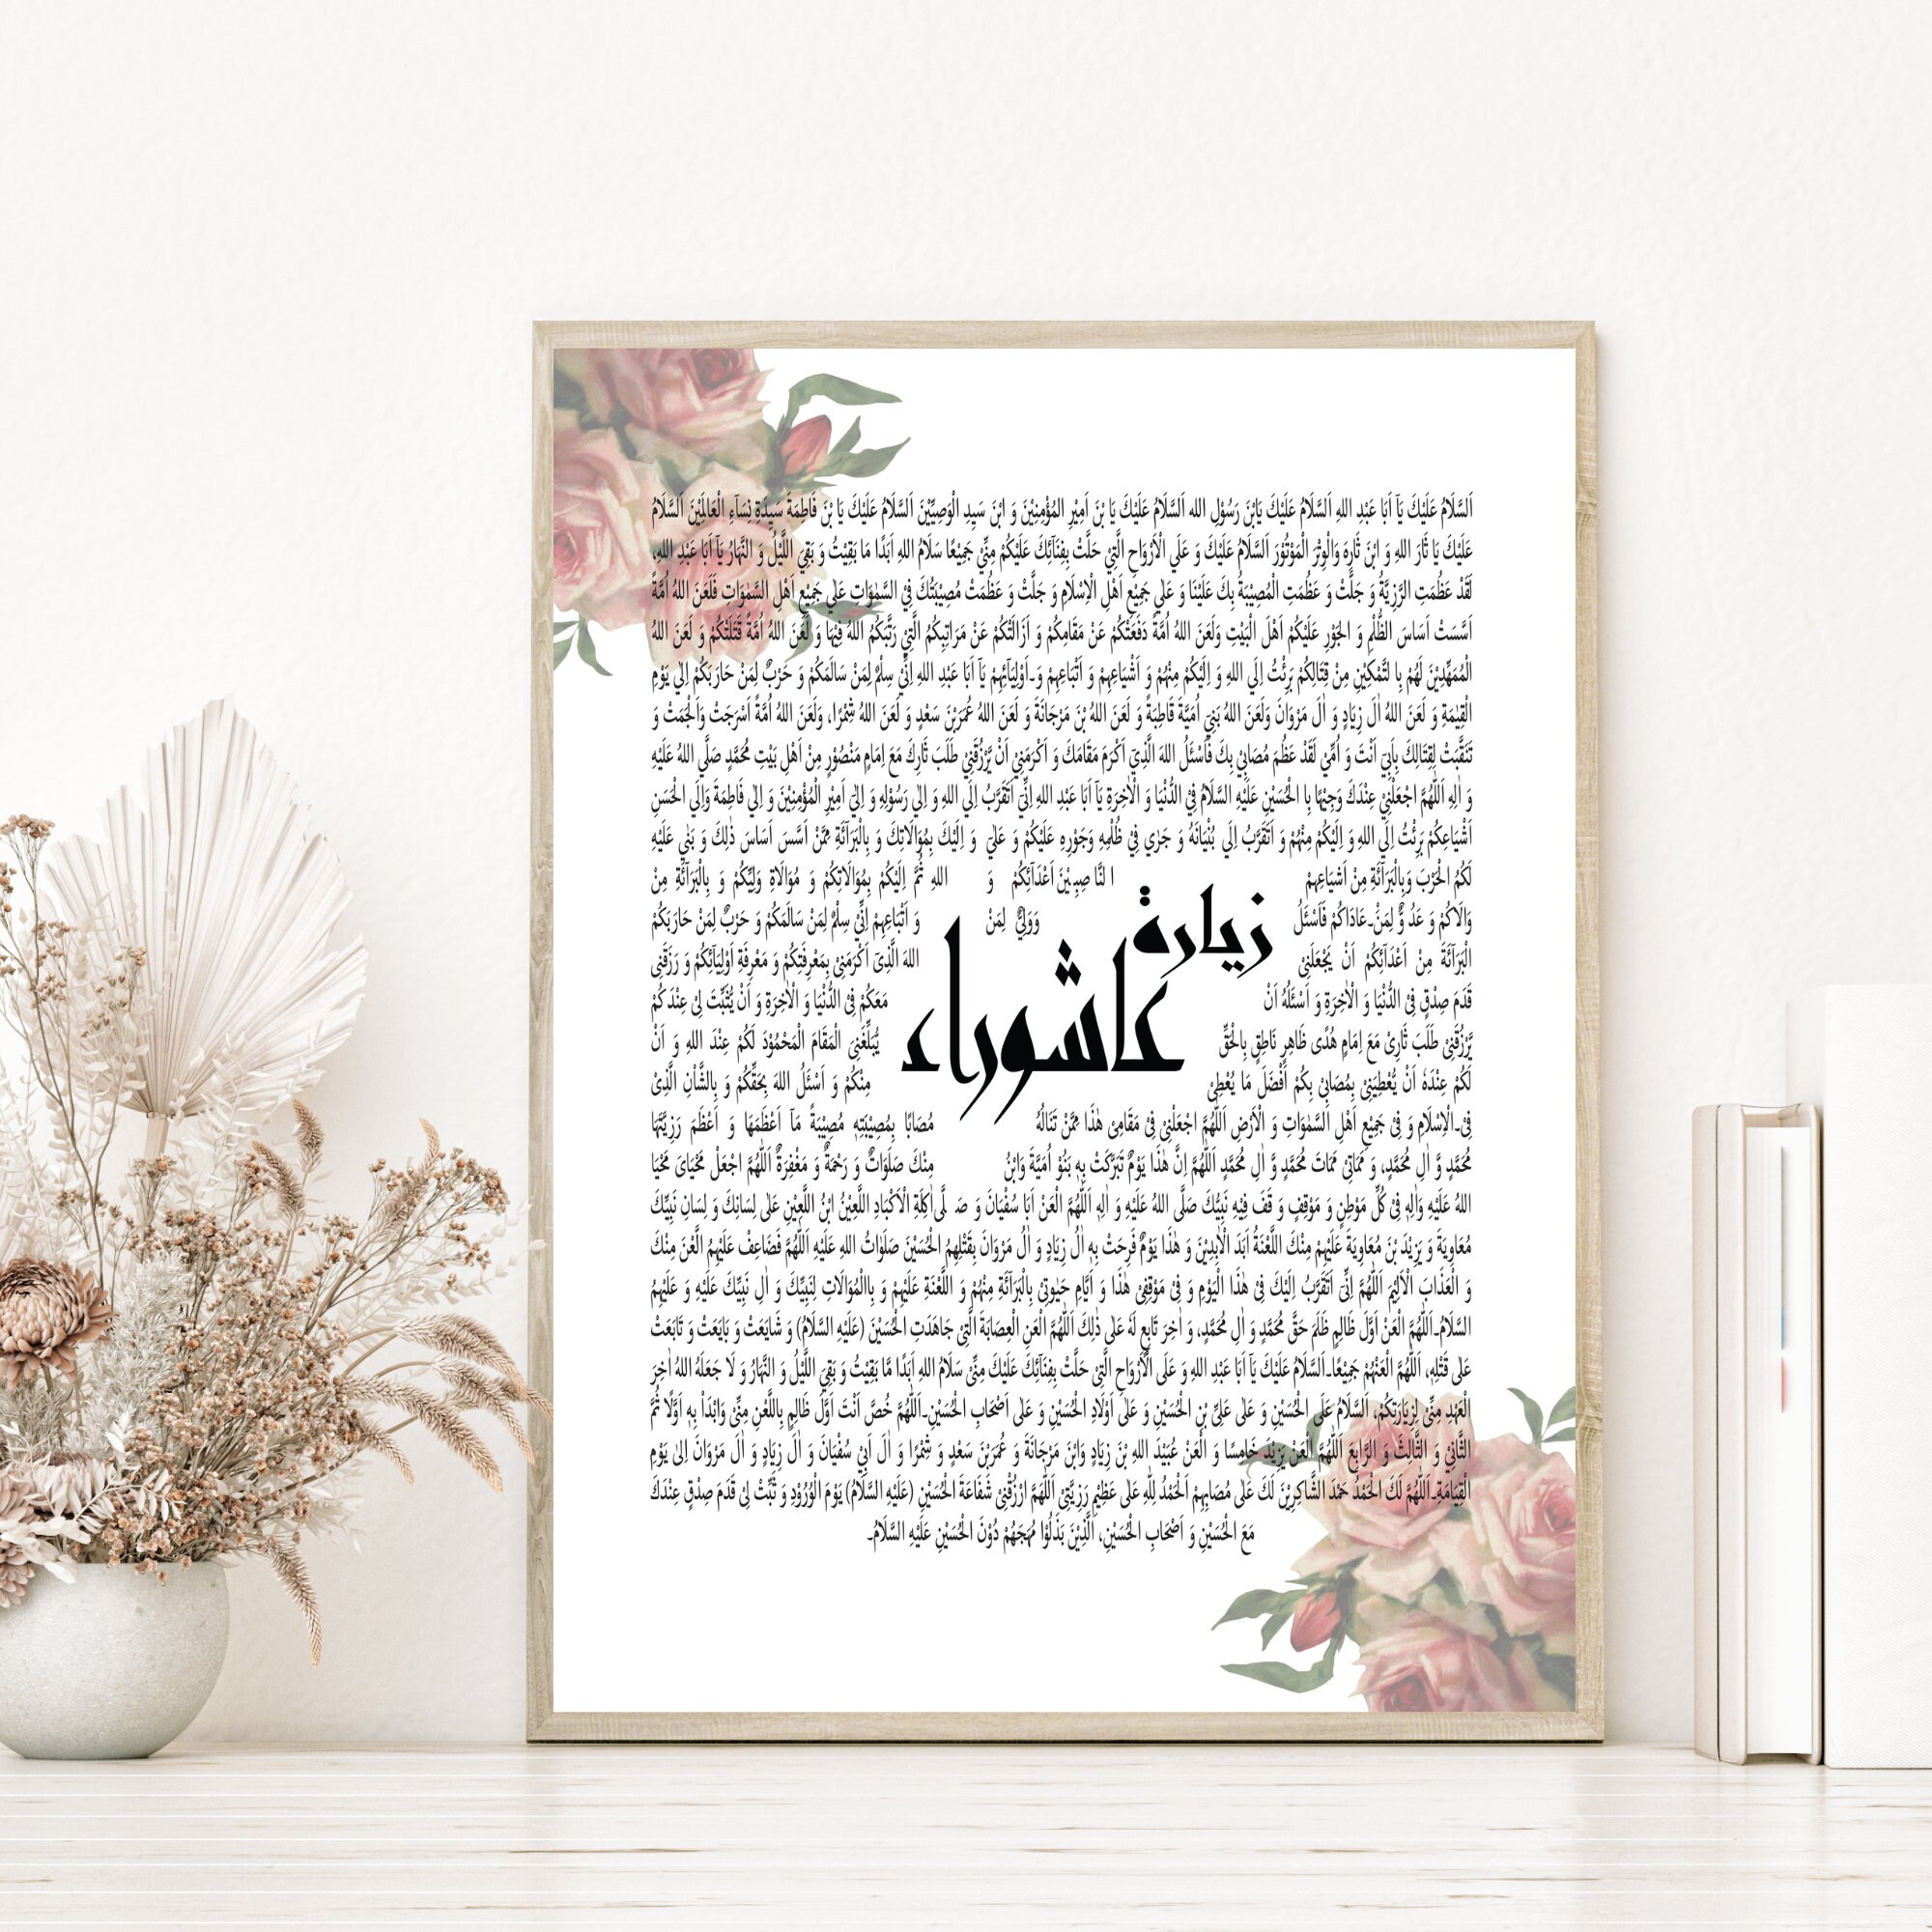 اَلسَّلَامُ عَلَيْكَ يَآ اَبَا عَبْدِ اللهِ اَلسَّلَامُ عَلَيْكَ يَابْنَ رَسُوْلِ الله اَلسَّلَامُ عَلَيْكَ يَا بْنَ اَمِيْرِ المُؤْمِنِيْنَ وَ ابْنَ سَيِدِ الْوَصِيِّيْنَ اَلسَّلَامُ عَلَيْكَ يَا بْنَ فَاطِمَةَ سَيِدَةِ نِسَآءِ الْعَالَمِيْنَ اَلسَّلَامُ
عَلَيْكَ يَا ثَارَ اللهِ وَ ابْنَ ثَارِهٖ وَالْوِتْرَ الْمَوْتُوْرَ اَلسَّلَامُ عَلَيْكَ وَ عَلَي الْاَرْوَاحِ الَّتِيْ حَلَّتْ بِفِنَآئِكَ عَلَيْكُمْ مِنِّيْ جَمِيْعًا سَلَامُ اللهِ اَبَدًا مَا بَقِيْتُ وَ بَقِيَ اللَّيْلُ وَ النَّهَارُ يَآ اَبَا عَبْدِ اللهِ،
لَقَدْ عَظُمَتِ الرَّزِيَّةُ وَ جَلَّتْ وَ عَظُمَتِ الْمُصِيْبَةُ بِكَ عَلَيْنَا وَ عَلٰي جَمِيْعِ اَهْلِ الْاِسْلَامِ وَ جَلَّتْ وَ عَظُمَتْ مُصِيْبَتُكَ فِي السَّمٰوَاتِ عَلٰي جَمِيْعِ اَهْلِ السَّمٰوَاتِ فَلَعَنَ اللهُ اُمَّةً
اَسَّسَتْ اَسَاسَ الظُّلْمِ وَ الجَوْرِ عَلَيْكُمْ اَهْلَ الْبَيْتِ وَلَعَنَ اللهُ اُمَّةً دَفَعَتْكُمْ عَنْ مَقَامِكُمْ وَ اَزَالَتْكُمْ عَنْ مَرَاتِبِكُمُ الَّتِيْ رَتَّبَكُمُ اللهُ فِيْهَا وَ لَعَنَ اللهُ اُمَّةً قَتَلَتْكُمْ وَ لَعَنَ اللهُ
الْمُمَهِّدِيْنَ لَهُمْ بِا لتَّمْكِيْنِ مِنْ قِتَالِكُمْ بَرِئْتُ اِلَي اللهِ وَ اِلَيْكُمْ مِنْهُمْ وَ اَشْيَاعِهِمْ وَ اَتْبَاعِهِمْ وَ۔اَوْلِيَآئِهِمْ يَآ اَبَا عَبْدِ اللهِ اِنِّيْ سِلْمٌ لِمَنْ سَالَمَكُمْ وَ حَرْبٌ لِمَنْ حَارَبَكُمْ اِلٰي يَوْمِ
الْقِيٰمَةِ وَ لَعَنَ اللهُ اٰلَ زِيَادٍ وَ اٰلَ مَرْوَانَ وَلَعَنَ اللهُ بَنِيْ اُمَيَّةَ قَاطِبَةً وَ لَعَنَ اللهُ بْنَ مَرْجَانَةَ وَ لَعَنَ اللهُ عُمَرَبْنَ سَعْدٍ وَ لَعَنَ اللهُ شِمْرًا، وَلَعَنَ اللهُ اُمَّةً اَسْرَجَتْ وَاَلْجَمَتْ وَ
تَنَقَّبَتْ لِقِتَالِكَ بِاَبِيْ اَنْتَ وَ اُمِّيْ لَقَدْ عَظُمَ مُصَابِيْ بِكَ فَاَسْئَلُ اللهَ الَّذِيْ اَكْرَمَ مَقَامَكَ وَ اَكْرَمَنِيْ اَنْ يَّرْزُقَنِيْ طَلَبَ ثَارِكَ مَعَ اِمَامٍ مَنْصُوْرٍ مِنْ اَهْلِ بَيْتِ مُحَمَّدٍ صَلَّي اللهُ عَلَيْهِ
وَ اٰلِهٖ اَللّٰهُمَّ اجْعَلْنِيْ عِنْدَكَ وَجِيْهًا بِا لْحُسَيْنِ عَلَيْهِ السَّلَامُ فِيْ الدُّنْيَا وَ الْاٰخِرَةِ يَآ اَبَا عَبْدِ اللهِ اِنِّيْ اَتَقَرَّبُ اِلَي اللهِ وَ اِلٰي رَسُوْلِهٖ وَ اِلٰيٓ اَمِيْرِ الْمُؤْمِنِيْنَ وَ اِلٰي فَاطِمَةَ وَاِلَي الْحَسَنِ
اَشْيَاعِكُمْ بَرِئْتُ اِلَي اللهِ وَ اِلَيْكُمْ مِنْهُمْ وَ اَتَقَرَّبُ اِلَي بُنْيَانَهٗ وَ جَرٰي فِيْ ظُلْمِهٖ وَجَوْرِهٖ عَلَيْكُمْ وَ عَلٰي وَ اِلَيْكَ بِمُوَالَاتِكَ وَ بِالْبَرَآئَةِ مِمَّنْ اَسَّسَ اَسَاسَ ذٰلِكَ وَ بَنٰي عَلَيْهِ
لَكُمُ الْحَرْبَ وَبِالْبَرَآئَةِ مِنْ اَشْيَاعِهِمْ ا لنَّا صِبِيْنَ اَعْدَآئِكُمْ وَ اللهِ ثُمَّ اِلَيْكُمْ بِمُوَالَاتِكُمْ وَ مُوَالَاةِ وَلِيِّكُمْ وَ بِالْبَرَآئَةِ مِنْ
وَالَاكُمْ وَ عَدُ وٌّ لِمَنْ۔عَادَاكُمْ فَاَسْئَلُ وَوَلِيٌّ لِمَنْ وَ اَتْبَاعِهِمْ اِنِّيْ سِلْمٌ لِمَنْ سَالَمَكُمْ وَ حَرْبٌ لِمَنْ حَارَبَكُمْ
زيارة
الْبَرَآئَةَ مِنْ اَعْدَآئِكُمْ اَنْ يَّجْعَلَنِيْ اللهَ الَّذِيْ اَكْرَمَنِيْ بِمَعْرِفَتِكُمْ وَ مَعْرِفَةِ اَوْلِيَآئِكُمْ وَ رَزَقَنِي
قَدَمَ صِدْقٍ فِي الدُّنْيَا وَ الْاٰخِرَةِ وَ اَسْئَلُهٗ اَنْ مَعَكُمْ فِي الدُّنْيَا وَ الْاٰخِرَةِ وَ اَنْ يُّثَبِّتَ لِيْ عِنْدَكُمْ
عاشوراء
يَّرْزُقَنِيْ طَلَبَ ثَارِيْ مَعَ اِمَامٍ هُدًى ظَاهِرٍ نَاطِقٍ بِالْحَقِّ يُّبَلِّغَنِيَ الْمَقَامَ الْمَحْمُوْدَ لَكُمْ عِنْدَ اللهِ وَ اَنْ
لَكُمْ عِنْدَهٗ اَنْ يُّعْطِيَنِيْ بِمُصَابِيْ بِكُمْ اَفْضَلَ مَا يُعْطِيْ مِنْكُمْ وَ اَسْئَلُ اللهَ بِحَقِّكُمْ وَ بِالشَّاْنِ الَّذِيْ
فِي۔الْاِسْلَامِ وَ فِيْ جَمِيْعِ اَهْلِ السَّمٰوَاتِ وَ الْاَرْضِ اَللّٰهُمَّ اجْعَلْنِيْ فِيْ مَقَامِيْ هٰذَا مِمَّنْ تَنَالُهٗ مُصَابًا بِمُصِيْبَتِهٖ مُصِيْبَةً مَآ اَعْظَمَهَا وَ اَعْظَمَ رَزِيَّتَهَا
مُحَمَّدٍ وَّ اٰلِ مُحَمَّدٍ، وَ مَمَاتِيْ مَمَاتَ مُحَمَّدٍ وَّ اٰلِ مُحَمَّدٍ اَللّٰهُمَّ اِنَّ هٰذَا يَوْمٌ تَبَرَّكَتْ بِهٖ بَنُوْ اُمَيَّةَ وَابْنُ مِنْكَ صَلَوَاتٌ وَ رَحْمَةٌ وَ مَغْفِرَةٌ اَللّٰهُمَّ اجْعَلْ مَحْيَايَ مَحْيَا
اللهُ عَلَيْهِ وَاٰلِهٖ فِيْ كُلِّ مَوْطِنٍ وَ مَوْقِفٍ وَ قَفَ فِيْهِ نَبِيُّكَ صَلَّى اللهُ عَلَيْهِ وَ اٰلِهٖ اَللّٰهُمَّ الْعَنْ اَبَا سُفْيَانَ وَ صَ لَّى اٰكِلَةِ الْاَكْبَادِ اللَّعِيْنُ ابْنُ اللَّعِيْنِ عَلٰى لِسَانِكَ وَ لِسَانِ نَبِيِّكَ
مُعَاوِيَةَ وَ يَزِيْدَ بْنَ مُعَاوِيَةَ عَلَيْهِمْ مِنْكَ اللَّعْنَةُ اَبَدَ الْاٰبِدِيْنَ وَ هٰذَا يَوْمٌ فَرِحَتْ بِهٖ اٰلُ زِيَادٍ وَ اٰلُ مَرْوَانَ بِقَتْلِهِمُ الْحُسَيْنَ صَلَوَاتُ اللهِ عَلَيْهِ اَللّٰهُمَّ فَضَاعِفْ عَلَيْهِمُ الَّعْنَ مِنْكَ
وَ الْعَذَابَ الْاَلِيْمَ اَللّٰهُمَّ اِنِّيْ اَتَقَرَّبُ اِلَيْكَ فِيْ هٰذَا الْيَوْمِ وَ فِيْ مَوْقِفِيْ هٰذَا وَ اَيَّامِ حَيٰوتِيْ بِالْبَرَآئَةِ مِنْهُمْ وَ اللَّعْنَةِ عَلَيْهِمْ وَ بِاالْمُوَالَاتِ لِنَبِيِّكَ وَ اٰلِ نَبِيِّكَ عَلَيْهِ وَ عَلَيْهِمُ
السَّلَامُ۔اَللّٰهُمَّ الْعَنْ اَوَّلَ ظَالِمٍ ظَلَمَ حَقَّ مُحَمَّدٍ وَ اٰلِ مُحَمَّدٍ، وَ اٰخِرَ تَابِعٍ لَهٗ عَلٰى ذٰلِكَ اَللّٰهُمَّ الْعَنِ الْعِصَابَةَ الَّتِيْ جَاهَدَتِ الْحُسَيْنَ (عَلَيْهِ السَّلَامُ) وَ شَايَعَتْ وَ بَايَعَتْ وَ تَابَعَتْ
عَلٰى قَتْلِهٖ، اَللّٰهُمَّ الْعَنْهُمْ جَمِيْعًا۔اَلسَّلَامُ عَلَيْكَ يَآ اَبَا عَبْدِ اللهِ وَ عَلَى الْاَرْوَاحِ الَّتِيْ حَلَّتْ بِفِنَآئِكَ عَلَيْكَ مِنِّيْ سَلَامُ اللهِ اَبَدًا مَّا بَقِيْتُ وَ بَقِيَ اللَّيْلُ وَ النَّهَارُ وَ لَا جَعَلَهُ اللهُ اٰخِرَ
الْعَهْدِ مِنِّيْ لِزِيَارَتِكُمْ، اَلسَّلَامُ عَلَى الْحُسَيْنِ وَ عَلٰى عَلِيِّ بْنِ الْحُسَيْنِ وَ عَلٰى اَوْلَادِ الْحُسَيْنِ وَ عَلٰى اَصْحَابِ الْحُسَيْنِ۔اَللّٰهُمَّ خُصَّ اَنْتَ اَوَّلَ ظَالِمٍ بِاللَّعْنِ مِنِّيْ وَابْدَاْ بِهٖ اَوَّلًا ثُمَّ
الثَّانِيْ وَ الثَّالِثَ وَ الرَّابِعَ اَللّٰهُمَّ الْعَنْ يَزِيْدَ خَامِسًا وَ الْعَنْ عُبَيْدَ اللهِ بْنَ زِيَادٍ وَابْنَ مَرْجَانَةَ وَ عُمَرَبْنَ سَعْدٍ وَ شِمْرًا وَ اٰلَ اَبِيْ سُفْيَانَ وَ اٰلَ زِيَادٍ وَ اٰلَ مَرْوَانَ اِلٰى يَوْمِ
الْقِيَامَةِ۔اَللّٰهُمَّ لَكَ الْحَمْدُ حَمْدَ الشَّاكِرِيْنَ لَكَ عَلٰى مُصَابِهِمْ اَلْحَمْدُ لِلّٰهِ عَلٰى عَظِيْمِ رَزِيَّتِيْ اَللّٰهُمَّ ارْزُقْنِيْ شَفَاعَةَ الْحُسَيْنِ (عَلَيْهِ السَّلَامُ) يَوْمَ الْوُرُوْدِ وَ ثَبِّتْ لِيْ قَدَمَ صِدْقٍ عِنْدَكَ
مَعَ الْحُسَيْنِ وَ اَصْحَابِ الْحُسَيْنِ، الَّذِيْنَ بَذَلُوْا مُهَجَهُمْ دُوْنَ الْحُسَيْنِ عَلَيْهِ السَّلَامُ۔